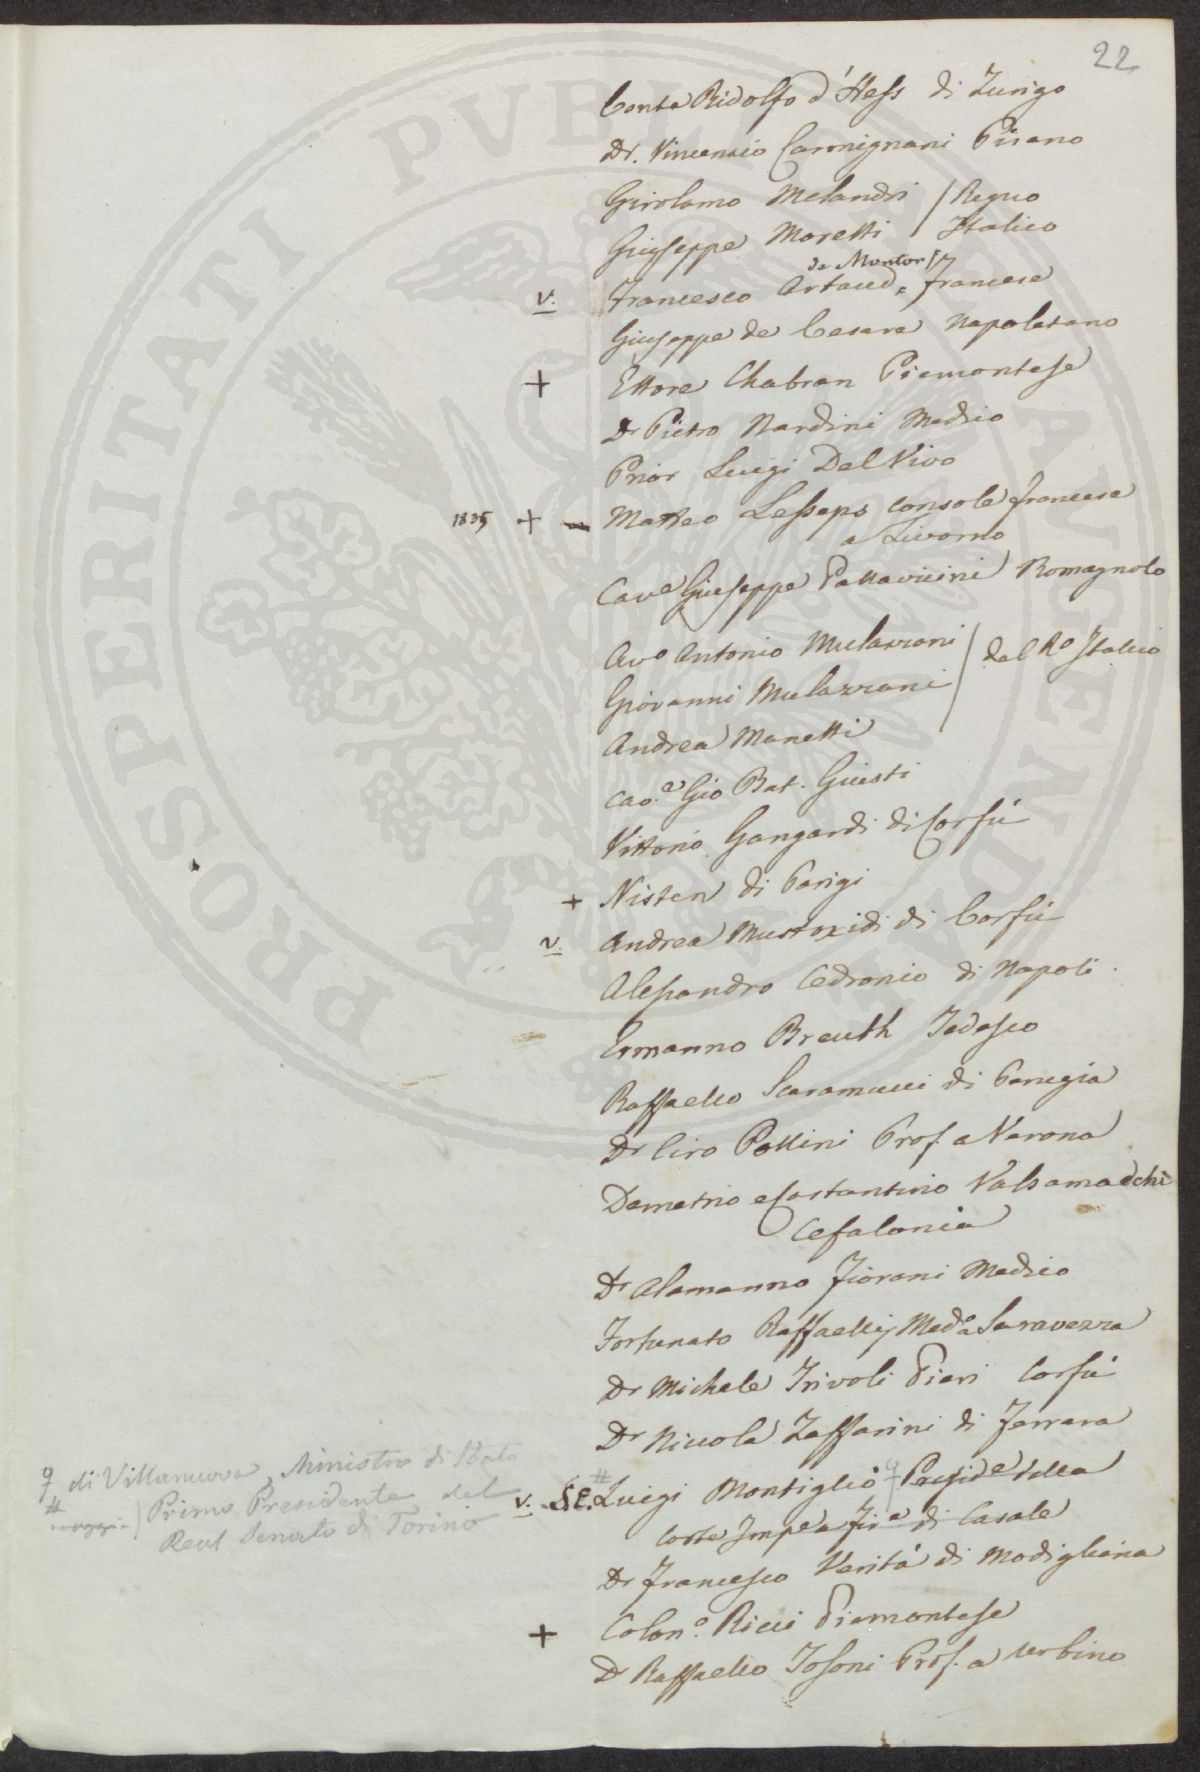 22
Conte Ridolfo d'Hess di Zurigo
Dr. Vincenzio Carmignani Pisano
Girolamo Melandri / Regno
Giuseppe Moretti / Italico
de Montor
v. Francesco Artaud, francese
Giuseppe de Cesare Napoletano
+ Ettore Chabran Piemontese
Dr Pietro Nardini Medico
Prior Luigi Del Vivo
1835 + Matteo Lesseps console francese
a Livorno
Cave Giuseppe Pallavicini Romagnolo
Avo Antonio Mulazzani / del Ro Italico
Giovanni Mulazzani
Andrea Manetti
Cav.e Gio Bat. Giusti
Vittorio Gangardi di Corfù
+ Nisten di Parigi
v. Andrea Mustoxidi di Corfù
Alessandro Cedronio di Napoli
Ermanno Breuth Tedesco
Raffaello Scaramucci di Perugia
Dr Ciro Pollini Prof. a Verona
Demetrio e Costantino Valsamacchi
Cefalonia
Dr Alamanno Fiorani Medico
Fortunato Raffaellj Medo a Saravezza
Dr Michele Trivoli Pieri Corfù
Dr Niccola Zaffarini di Ferrara
v. S.E. # Luigi Montiglio Preside della
Corte Impe a di Casale
di Villanuova, Ministro di Stato
# Primo Presidente del
Real Senato di Torino
Dr Francesco Verità di Modigliana
+ Colono. Ricci Piemontese
Dr Raffaello Tosoni Prof. a Urbino
PROSPERITATI PVBLICAE AVGENDAE